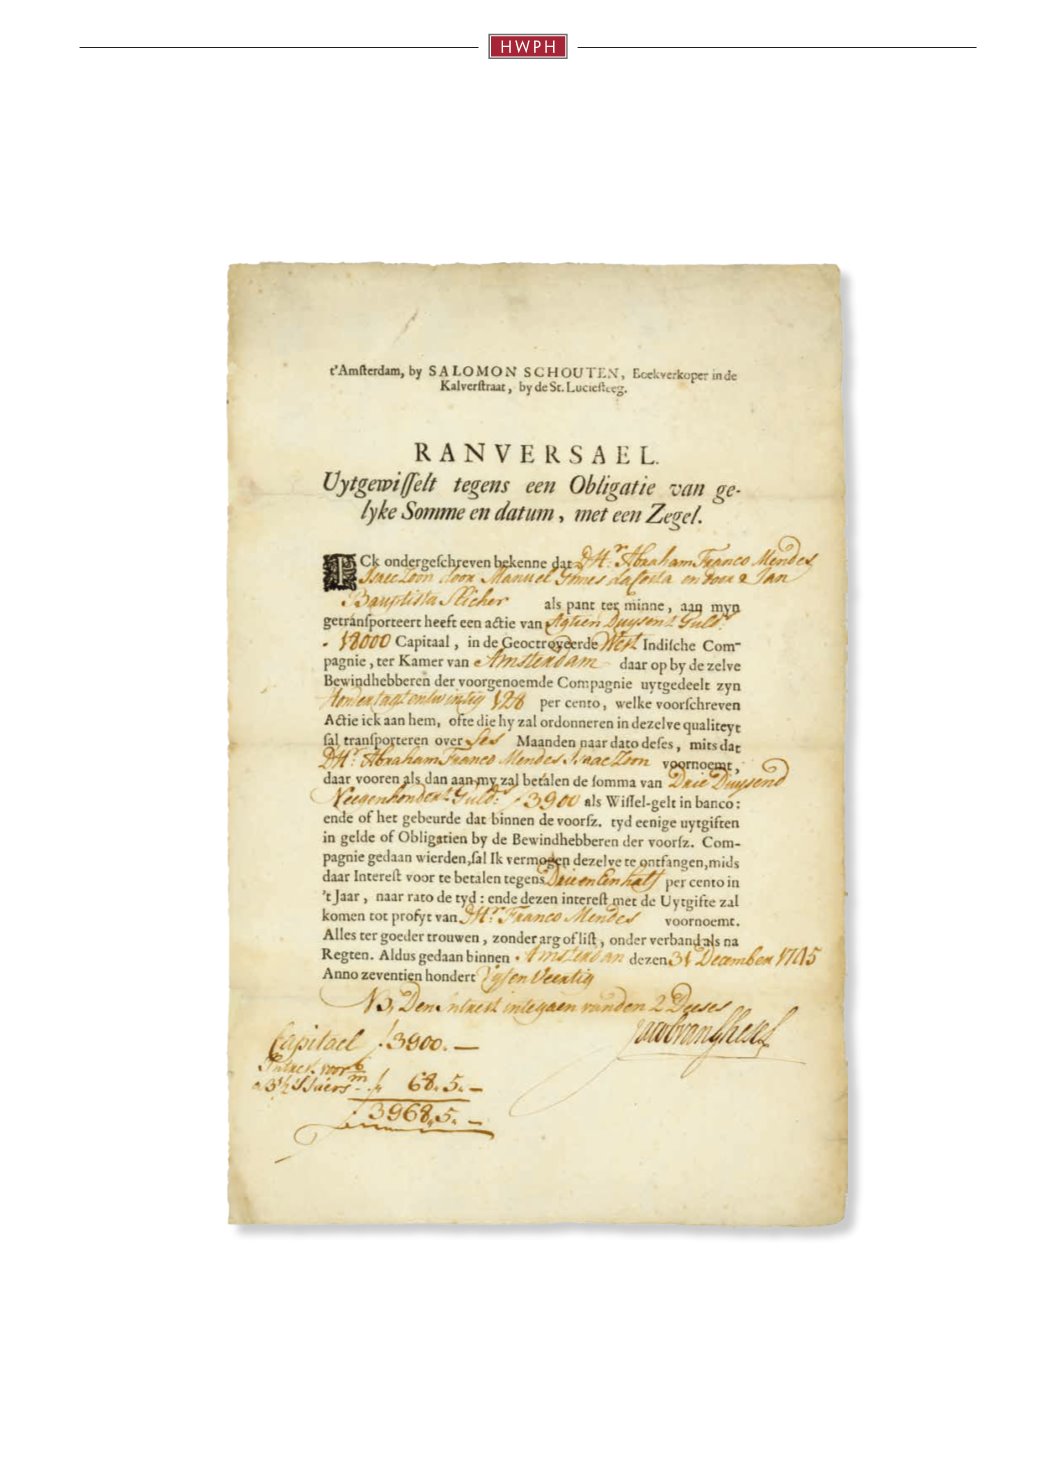 HWPH
t'Amſterdam, by SALOMON SCHOUTEN, Boekverkoper in de
Kalverſtraat, by de St. Lucieſteeg.
RANVERSAEL.
Uytgewiſſelt tegens een Obligatie van ge-
lyke Somme en datum, met een Zegel.
ICk ondergeſchreven bekenne dat DHr. Abraham Franco Mendes
Isaac Zoon door Manuel en door Jan
Bauptista Slicher als pant ter minne, aan myn
getranſporteert heeft een actie van Agtien Duysent Guld.s
18000 Capitaal, in de Geoctroyeerde West Indiſche Com-
pagnie, ter Kamer van Amsterdam daar op by de zelve
Bewindhebberen der voorgenoemde Compagnie uytgedeelt zyn
128 per cento, welke voorſchreven
Actie ick aan hem, ofte die hy zal ordonneren in dezelve qualiteyt
ſal tranſporteren over Ses Maanden naar dato deſes, mits dat
DHr. Abraham Franco Mendes Isaac Zoon voornoemt,
daar vooren als dan aan my zal betalen de ſomma van Drie Duysend
Neegenhondert Guld.s ƒ3900 als Wiſſel-gelt in banco:
ende of het gebeurde dat binnen de voorſz. tyd eenige uytgiften
in gelde of Obligatien by de Bewindhebberen der voorſz. Com-
pagnie gedaan wierden, ſal Ik vermogen dezelve te ontfangen, mids
daar Intereſt voor te betalen tegens Drie en Een half per cento in
't Jaar, naar rato de tyd: ende dezen intereſt met de Uytgifte zal
komen tot profyt van DHr. Franco Mendes voornoemt.
Alles ter goeder trouwen, zonder arg of liſt, onder verband als na
Regten. Aldus gedaan binnen Amsterdam dezen 31 December 1745
Anno zeventien hondert Vyf en Veertig
NB, Den Intrest ingegaen vanden 2 Deses
Jacob van Ghesel
Capitael ƒ3900.—
Intrest voor 6/m
a 3½ ƒ 68„5„—
ƒ3968„5„—